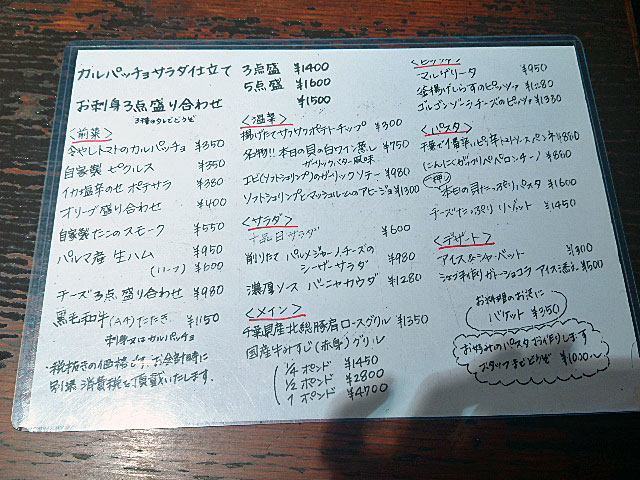 カルパッチョサラダ仕立て 3点盛 ¥1400
5点盛 ¥1600
お刺身3点盛り合わせ ¥1500
3種のタレでどうぞ
<前菜>
冷やしトマトのカルパッチョ ¥350
自家製 ピクルス ¥350
イカ塩辛のせ ポテサラ ¥380
オリーブ盛り合わせ ¥400
自家製たこのスモーク ¥550
パルマ産 生ハム ¥950
(ハーフ) ¥600
チーズ3点盛り合わせ ¥980
黒毛和牛(A4)たたき ¥1150
刺身又はカルパッチョ
・税抜きの価格です。お会計時に
別途消費税を頂戴いたします。
<温菜>
揚げたてサクサクポテトチップ ¥300
名物!! 本日の貝の白ワイン蒸し ¥750
ガーリックバター風味
エビ(ソフトシュリンプ)のガーリックソテー ¥980
ソフトシュリンプとマッシュルームのアヒージョ ¥1300
<サラダ>
十品目サラダ ¥600
削りたて パルメジャーノチーズの
シーザーサラダ ¥980
濃厚ソース バーニャカウダ ¥1280
<メイン>
千葉県産北総豚肩ロースグリル ¥1350
国産牛みすじ(赤身)グリル
1/4 ポンド ¥1450
1/2 ポンド ¥2800
1 ポンド ¥4700
<ピッツァ>
マルゲリータ ¥950
釜揚げしらすのピッツァ ¥1280
ゴルゴンゾーラチーズのピッツァ ¥1330
<パスタ>
¥860
にんにくガッツリペペロンチーノ ¥860
本日の貝たっぷりパスタ ¥1600
チーズたっぷり リゾット ¥1450
<デザート>
アイス&シャーベット ¥300
シェフ手作りガトーショコラ アイス添え ¥500
お料理のお供に
バゲット ¥350
お好みのパスタお作りします
スタッフまでどうぞ ¥1000〜